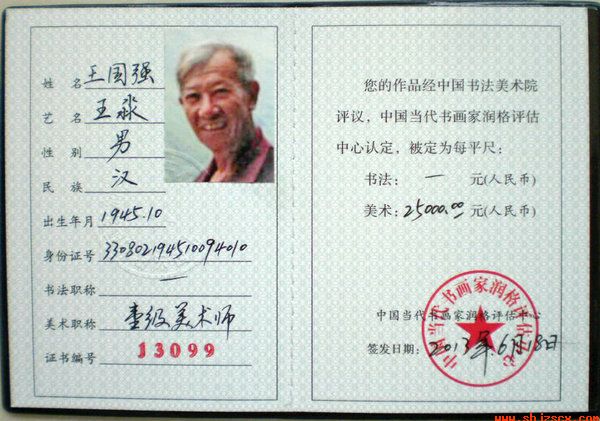 姓 名 王国强
艺 名 王
性 别 男
民 族 汉
出生年月 1945.10
身份证号 330802194510094010
书法职称 一
美术职称 壹级美术师
证书编号 13099
您的作品经中国书法美术院
评议，中国当代书画家润格评估
中心认定，被定为每平尺：
书法： 一 元(人民币)
美术：25000.00 元(人民币)
中国当代书画家润格评估中心
签发日期：2013年6月18日
中国当代书画家润格评估中心
www.shjzscx.com